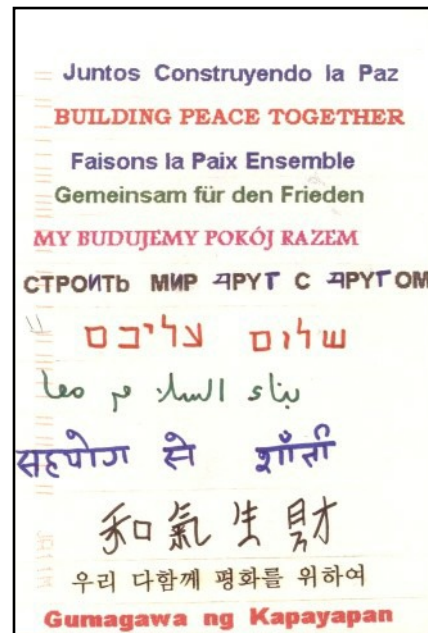 Juntos Construyendo la Paz
BUILDING PEACE TOGETHER
Faisons la Paix Ensemble
Gemeinsam für den Frieden
MY BUDUJEMY POKÓJ RAZEM
СТРОИТЬ МИР ДРУГ С ДРУГОМ
שלום עליכם
بناء السلام معا
सहयोग से शाँती
和氣生財
우리 다함께 평화를 위하여
Gumagawa ng Kapayapan